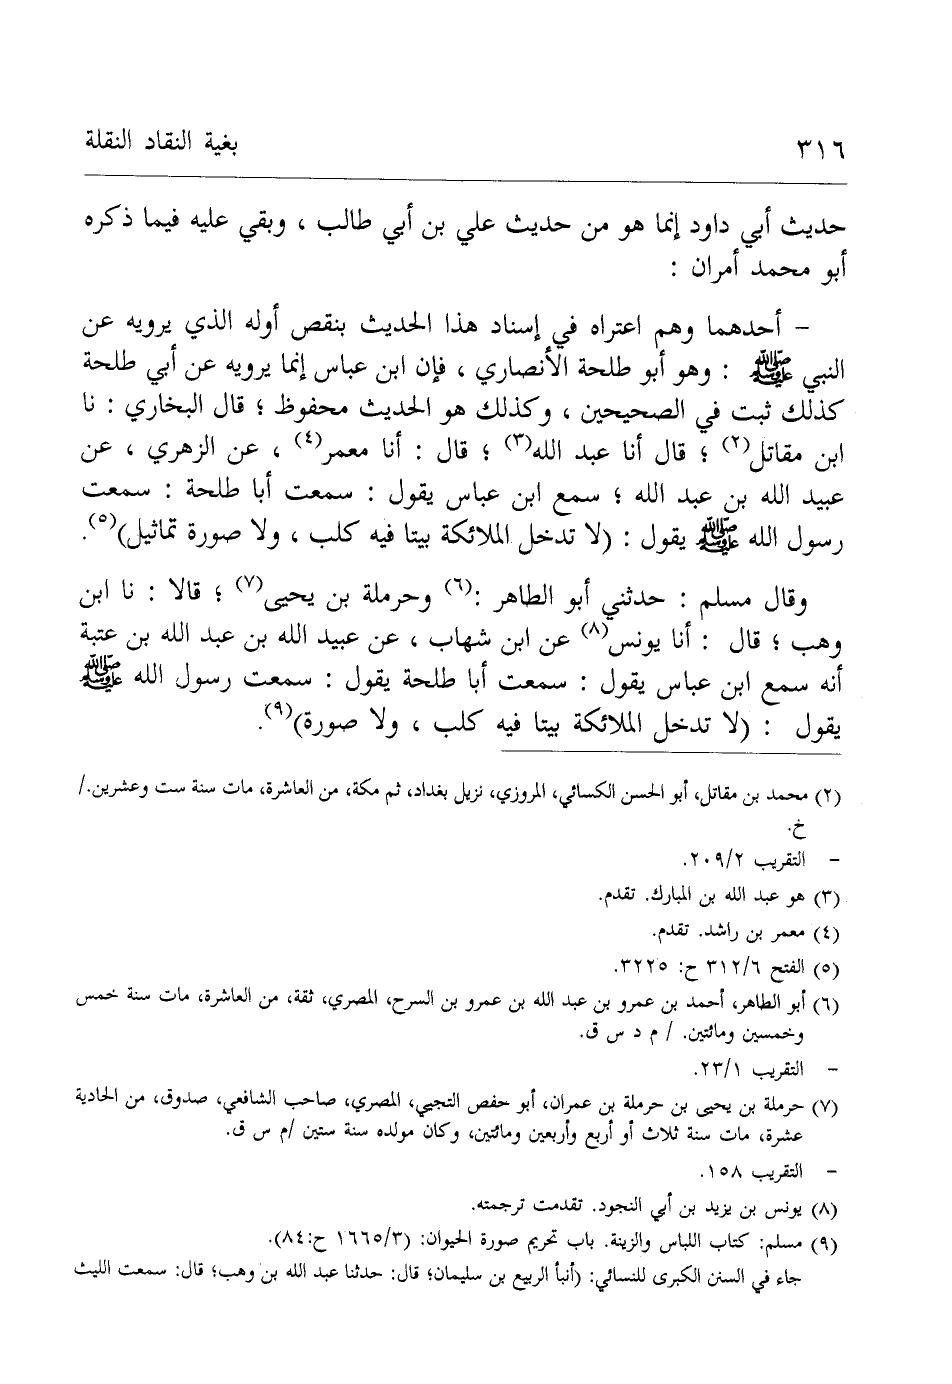 ٣١٦ بغية النقاد النقلة
حديث أبي داود إنما هو من حديث علي بن أبي طالب ، وبقي عليه فيما ذكره
أبو محمد أمران :
- أحدهما وهم اعتراه في إسناد هذا الحديث بنقص أوله الذي يرويه عن
النبي ﷺ : وهو أبو طلحة الأنصاري ، فإن ابن عباس إنما يرويه عن أبي طلحة
كذلك ثبت في الصحيحين ، وكذلك هو الحديث محفوظ ؛ قال البخاري : نا
ابن مقاتل(٢) ؛ قال أنا عبد الله(٣) ؛ قال : أنا معمر(٤) ، عن الزهري ، عن
عبيد الله بن عبد الله ؛ سمع ابن عباس يقول : سمعت أبا طلحة : سمعت
رسول الله ﷺ يقول : (لا تدخل الملائكة بيتا فيه كلب ، ولا صورة تماثيل)(٥).
وقال مسلم : حدثني أبو الطاهر :(٦) وحرملة بن يحيى(٧) ؛ قالا : نا ابن
وهب ؛ قال : أنا يونس(٨) عن ابن شهاب ، عن عبيد الله بن عبد الله بن عتبة
أنه سمع ابن عباس يقول : سمعت أبا طلحة يقول : سمعت رسول الله ﷺ
يقول : (لا تدخل الملائكة بيتا فيه كلب ، ولا صورة)(٩).
(٢) محمد بن مقاتل، أبو الحسن الكسائي، المروزي، نزيل بغداد، ثم مكة، من العاشرة، مات سنة ست وعشرين./
خ.
- التقريب ٢٠٩/٢.
(٣) هو عبد الله بن المبارك. تقدم.
(٤) معمر بن راشد. تقدم.
(٥) الفتح ٣١٢/٦ ح: ٣٢٢٥.
(٦) أبو الطاهر، أحمد بن عمرو بن عبد الله بن عمرو بن السرح، المصري، ثقة، من العاشرة، مات سنة خمس
وخمسين ومائتين. / م د س ق.
- التقريب ٢٣/١.
(٧) حرملة بن يحيى بن حرملة بن عمران، أبو حفص التجيي، المصري، صاحب الشافعي، صدوق، من الحادية
عشرة، مات سنة ثلاث أو أربع وأربعين ومائتين، وكان مولده سنة ستين /م س ق.
- التقريب ١٥٨.
(٨) يونس بن يزيد بن أبي النجود. تقدمت ترجمته.
(٩) مسلم: كتاب اللباس والزينة. باب تحريم صورة الحيوان: (١٦٦٥/٣ ح:٨٤).
جاء في السنن الكبرى للنسائي: (أنبأ الربيع بن سليمان؛ قال: حدثنا عبد الله بن وهب؛ قال: سمعت الليث